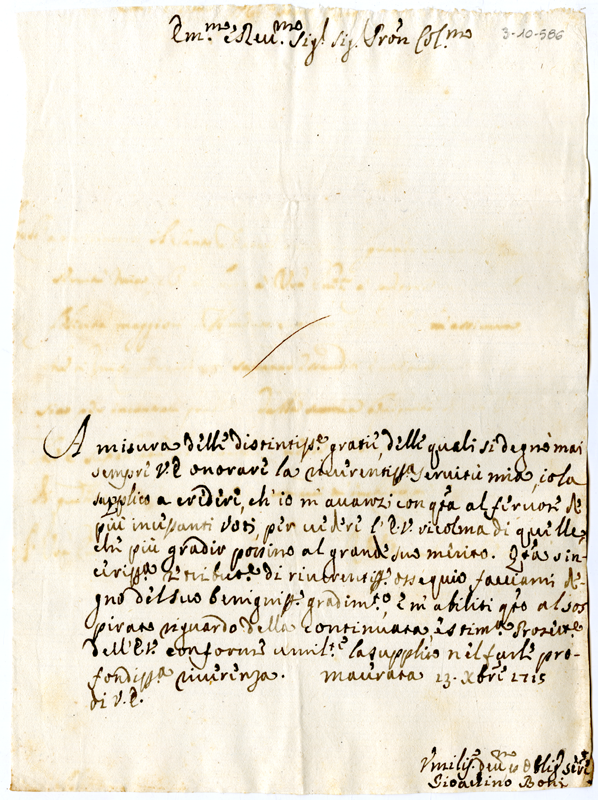 Em.mo e Reu.mo Sig.r Sig.r Pron Col.mo
3-10-586
A misura delle distintiss.e gratie, delle quali si degnò mai
sempre V.E. onorare la riuerentissa seruitù mia, io la
supplico a credere, ch'io m'auanzi con qta al feruore de
più incessanti voti, per uedere l'E.V. ricolma di quelle,
che più gradir possino al grande suo merito. Qta sin-
cerissa e tribut.e di riuerentiss. ossequio, facciami de-
gno del suo benigniss. gradim.to, e m'abiliti qto al sos
pirato riguardo della continuata, e stim.a Protet.e
dell'E.V. conforme umil.te la supplico nel farle pro-
fondissa riuerenza. Macerata 13. Xbre 1715
di V.E.
Vmiliss. deu.mo ed oblig. ser.e
Gioachino Boni